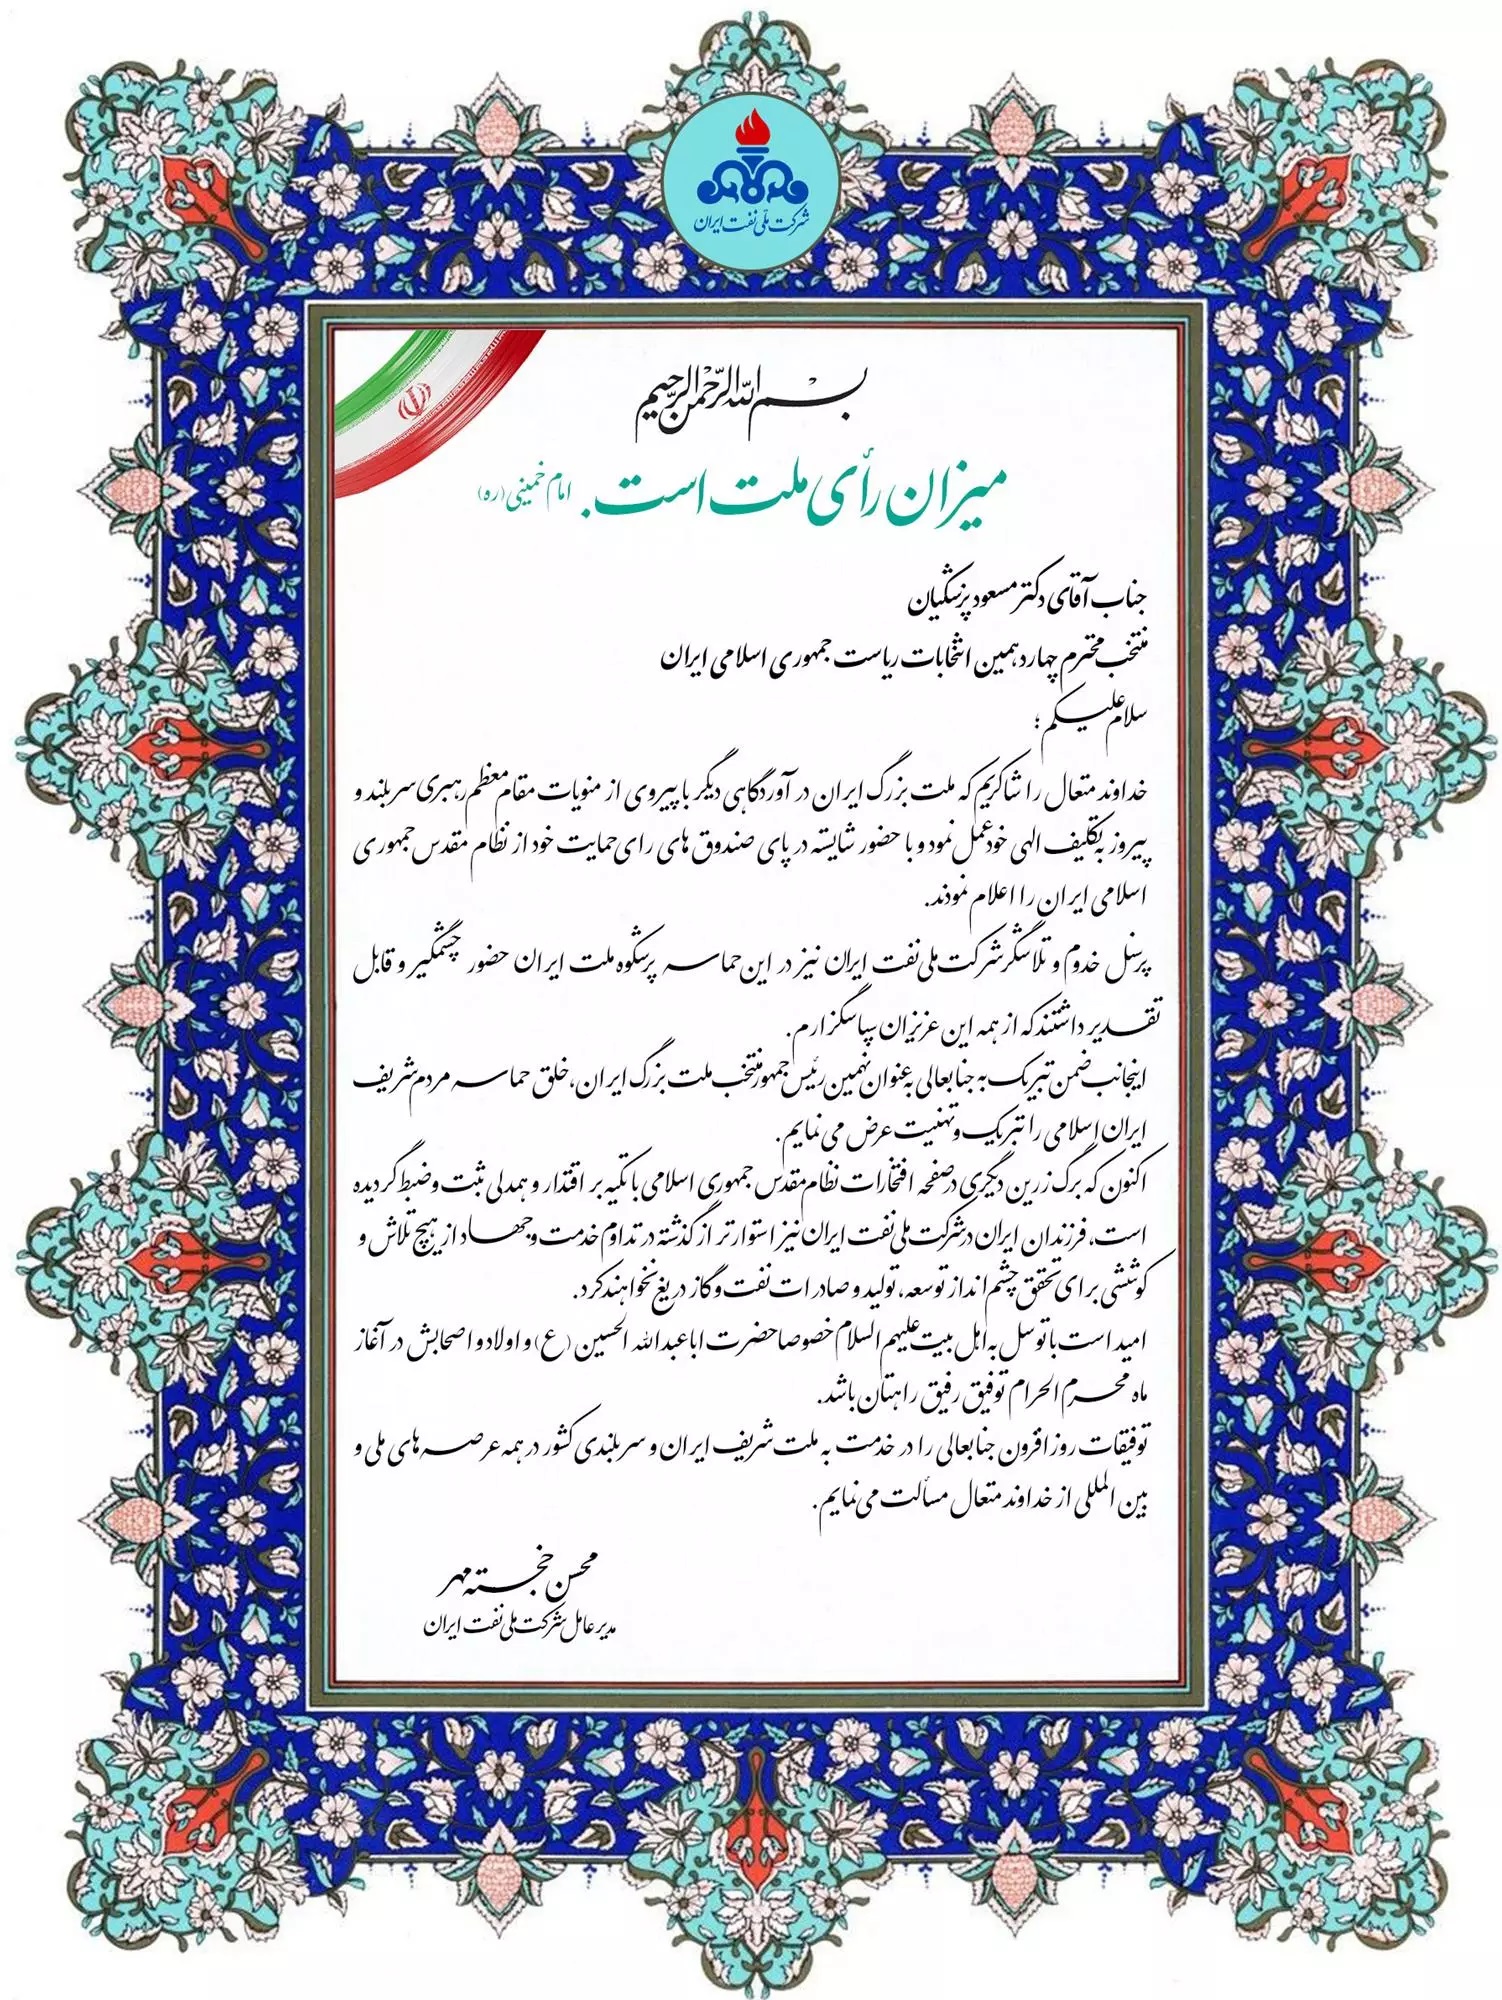 شرکت ملّی نفت ایران
بسم الله الرّحمن الرّحیم
میزان رأی ملت است. امام خمینی (ره)
جناب آقای دکتر مسعود پزشکیان
منتخب محترم چهاردهمین انتخابات ریاست جمهوری اسلامی ایران
سلام علیکم؛
خداوند متعال را شاکریم که ملت بزرگ ایران در آوردگاهی دیگر با پیروی از منویات مقام معظم رهبری سربلند و
پیروز به تکلیف الهی خود عمل نمود و با حضور شایسته در پای صندوق های رای حمایت خود از نظام مقدس جمهوری
اسلامی ایران را اعلام نمودند.
پرسنل خدوم و تلاشگر شرکت ملی نفت ایران نیز در این حماسه پرشکوه ملت ایران حضور چشمگیر و قابل
تقدیر داشتند که از همه این عزیزان سپاسگزارم.
اینجانب ضمن تبریک به جنابعالی به عنوان نهمین رئیس جمهور منتخب ملت بزرگ ایران، خلق حماسه مردم شریف
ایران اسلامی را تبریک و تهنیت عرض می نمایم.
اکنون که برگ زرین دیگری در صفحه افتخارات نظام مقدس جمهوری اسلامی با تکیه بر اقتدار و همدلی ثبت و ضبط گردیده
است، فرزندان ایران در شرکت ملی نفت ایران نیز استوارتر از گذشته در تداوم خدمت و جهاد از هیچ تلاش و
کوششی برای تحقق چشم انداز توسعه، تولید و صادرات نفت و گاز دریغ نخواهند کرد.
امید است با توسل به اهل بیت علیهم السلام خصوصا حضرت اباعبدالله الحسین (ع) و اولاد و اصحابش در آغاز
ماه محرم الحرام توفیق رفیق راهتان باشد.
توفیقات روزافزون جنابعالی را در خدمت به ملت شریف ایران و سربلندی کشور در همه عرصه های ملی و
بین المللی از خداوند متعال مسألت می نمایم.
محسن خجسته مهر
مدیر عامل شرکت ملی نفت ایران